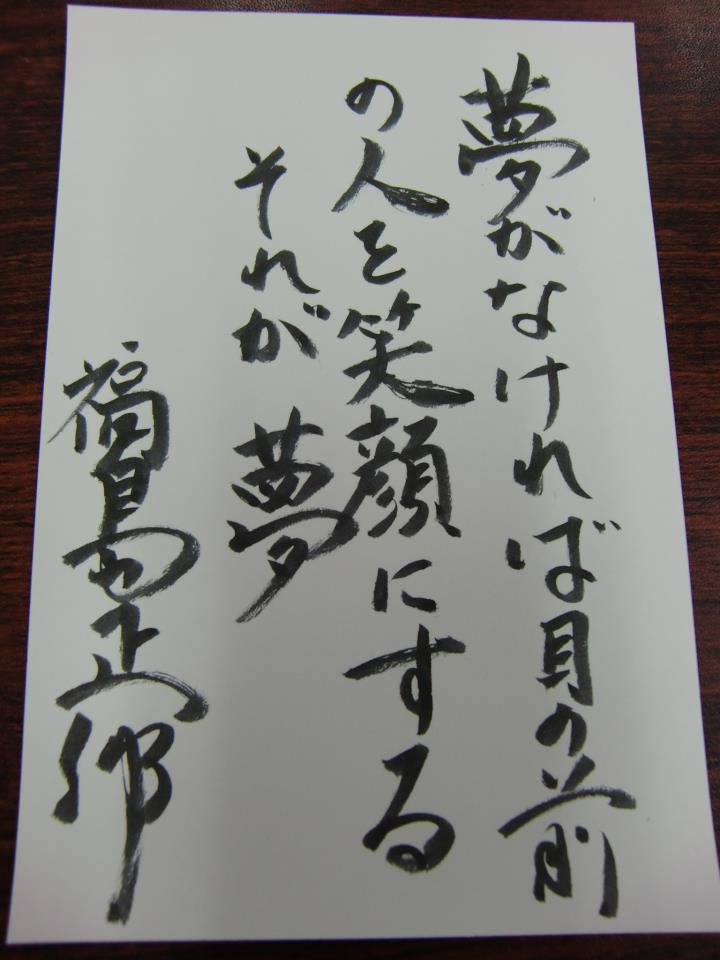 夢がなければ目の前
の人を笑顔にする
それが夢
福島正伸